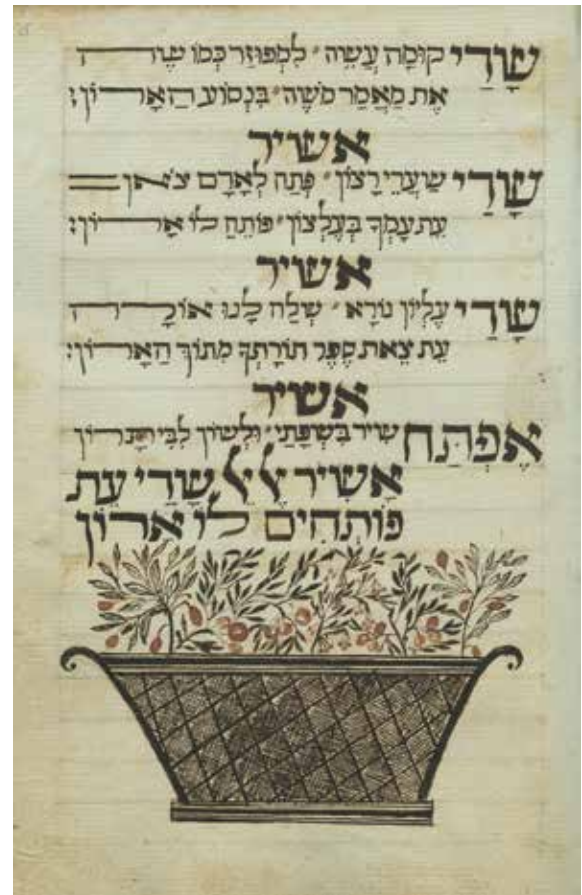 שָׂרַי קוֹמָה עֲשֵׂה׳ לִמְפוּזַר כְּמוֹ שֶׂה
אֶת מַאֲמַר מֹשֶׁה׳ בִּנְסוֹעַ הָאָרוֹן:
אשיר
שָׂרַי שַׁעֲרֵי רָצוֹן׳ פְּתַח לְאָדָם צֹאן
עֵת עַמְּךָ בְּעֶלְצוֹן׳ פּוֹתֵחַ לוֹ אָרוֹן:
אשיר
שָׂרַי עֶלְיוֹן נוֹרָא׳ שְׁלַח לָנוּ אוֹרָה
עֵת צֵאת סֵפֶר תּוֹרָתְךָ מִתּוֹךְ הָאָרוֹן:
אשיר
אֶפְתַּח שִׁיר בִּשְׂפָתַי׳ וּלְשׁוֹן לִבִּי
אָשִׁיר לְיל שָׁדַי עֵת
פּוֹתְחִים לוֹ ארון